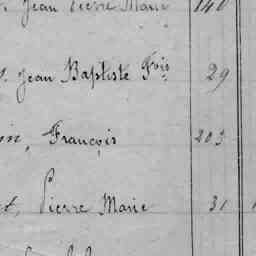 Jean Pierre Marie 140
Jean Baptiste Fois 29
François 203
Pierre Marie 31